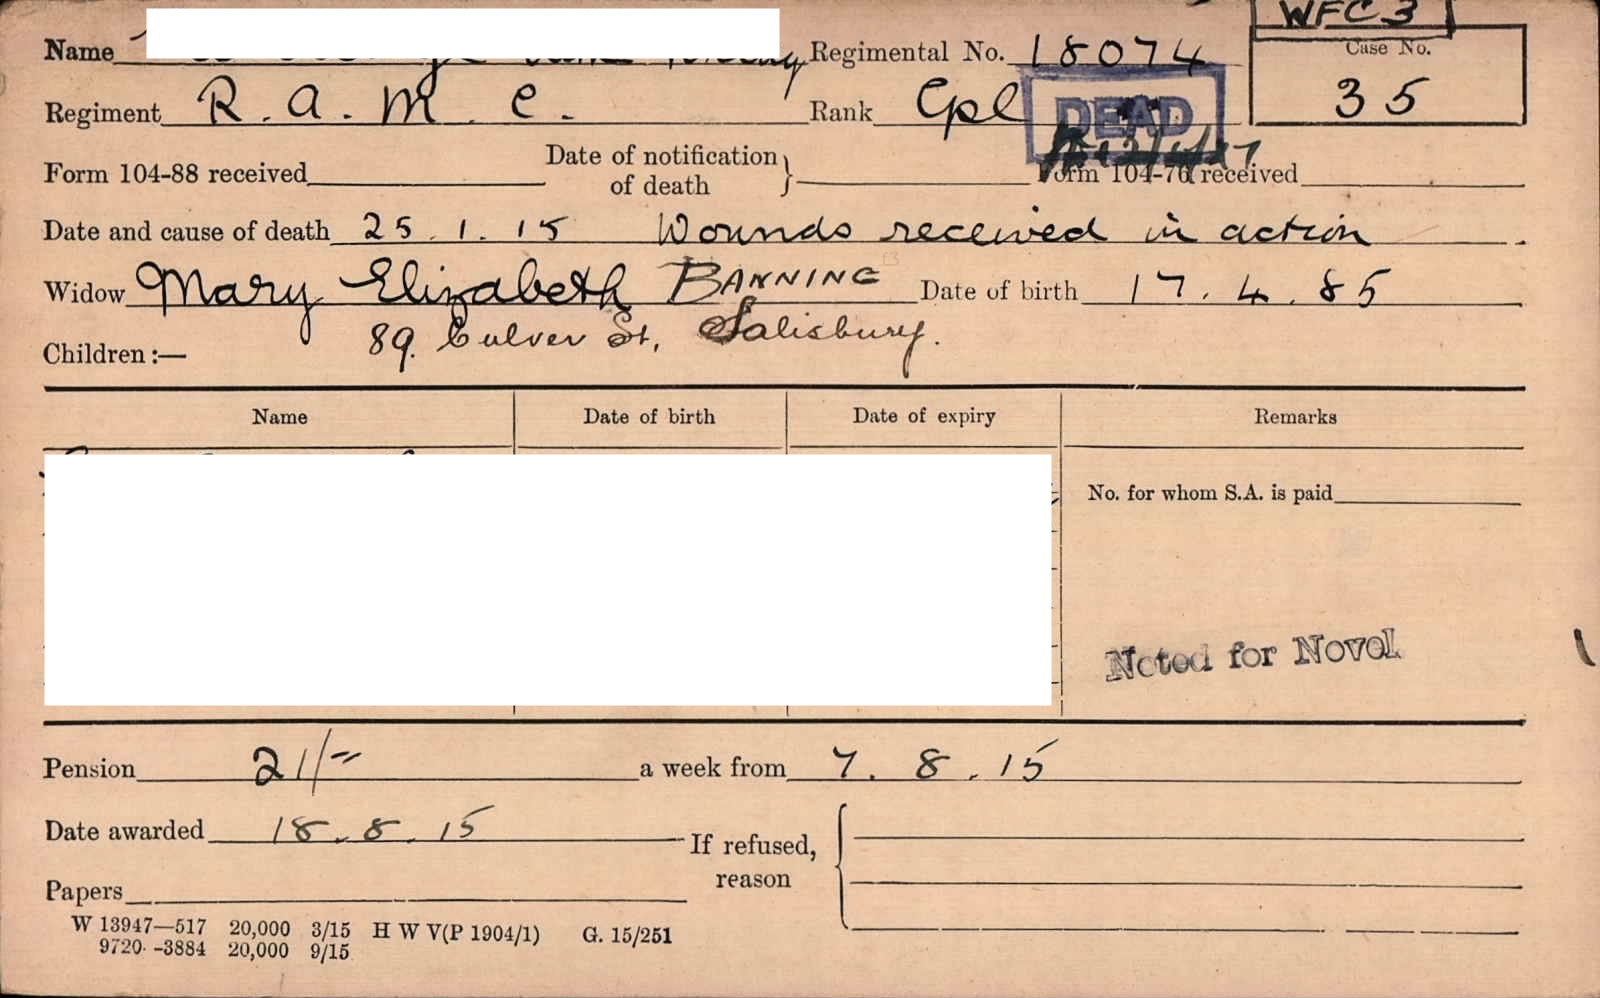 WFC 3
Name Regimental No. 18074 Case No.
35
Regiment R. A. M. C. Rank Cpl DEAD
Form 104-88 received Date of notification of death Form 104-76 received
Date and cause of death 25.1.15 Wounds received in action
Widow Mary Elizabeth BANNING Date of birth 17.4.85
89. Culver St, Salisbury.
Children :—
Name Date of birth Date of expiry Remarks
No. for whom S.A. is paid
Noted for Novel
Pension 21/- a week from 7.8.15
Date awarded 18.8.15
If refused, reason
Papers
W 13947—517 20,000 3/15 H W V(P 1904/1) G. 15/251
9720--3884 20,000 9/15